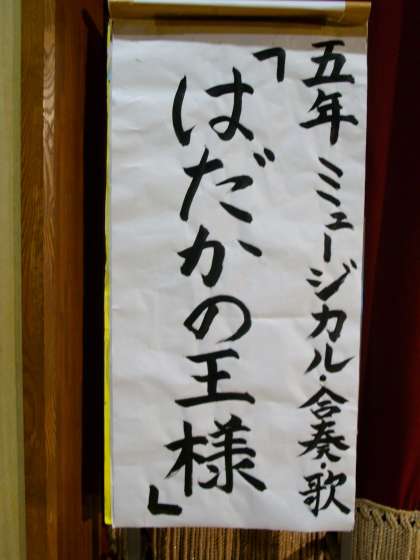 五年 ミュージカル・合奏・歌
「はだかの王様」